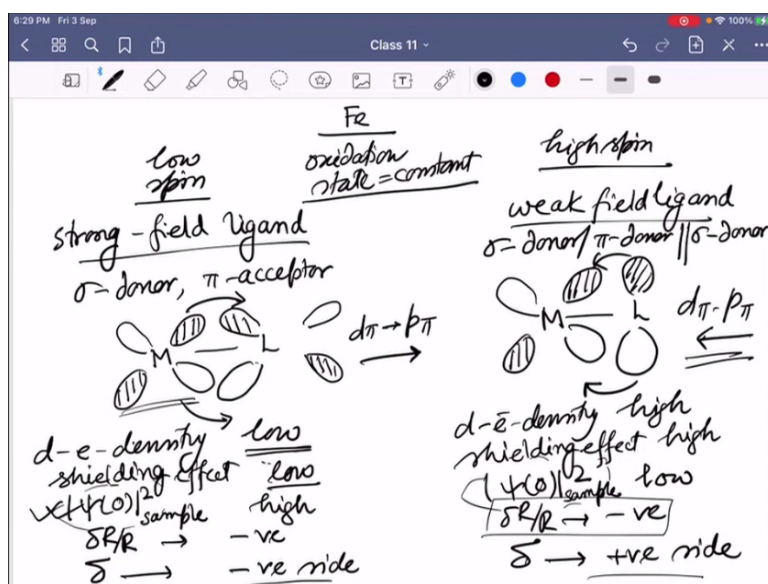 6:29 PM Fri 3 Sep
100%
Class 11
Fe
oxidation
state = constant
low
spin
strong-field ligand
σ-donor, π-acceptor
M — L
dπ→pπ
d-e-density low
shielding effect low
|Ψ(0)|²sample high
δR/R → -ve
δ → -ve side
high spin
weak field ligand
σ-donor/π-donor||σ-donor
M — L
dπ-pπ
d-ē-density high
shielding effect high
|Ψ(0)|²sample low
δR/R → -ve
δ → +ve side